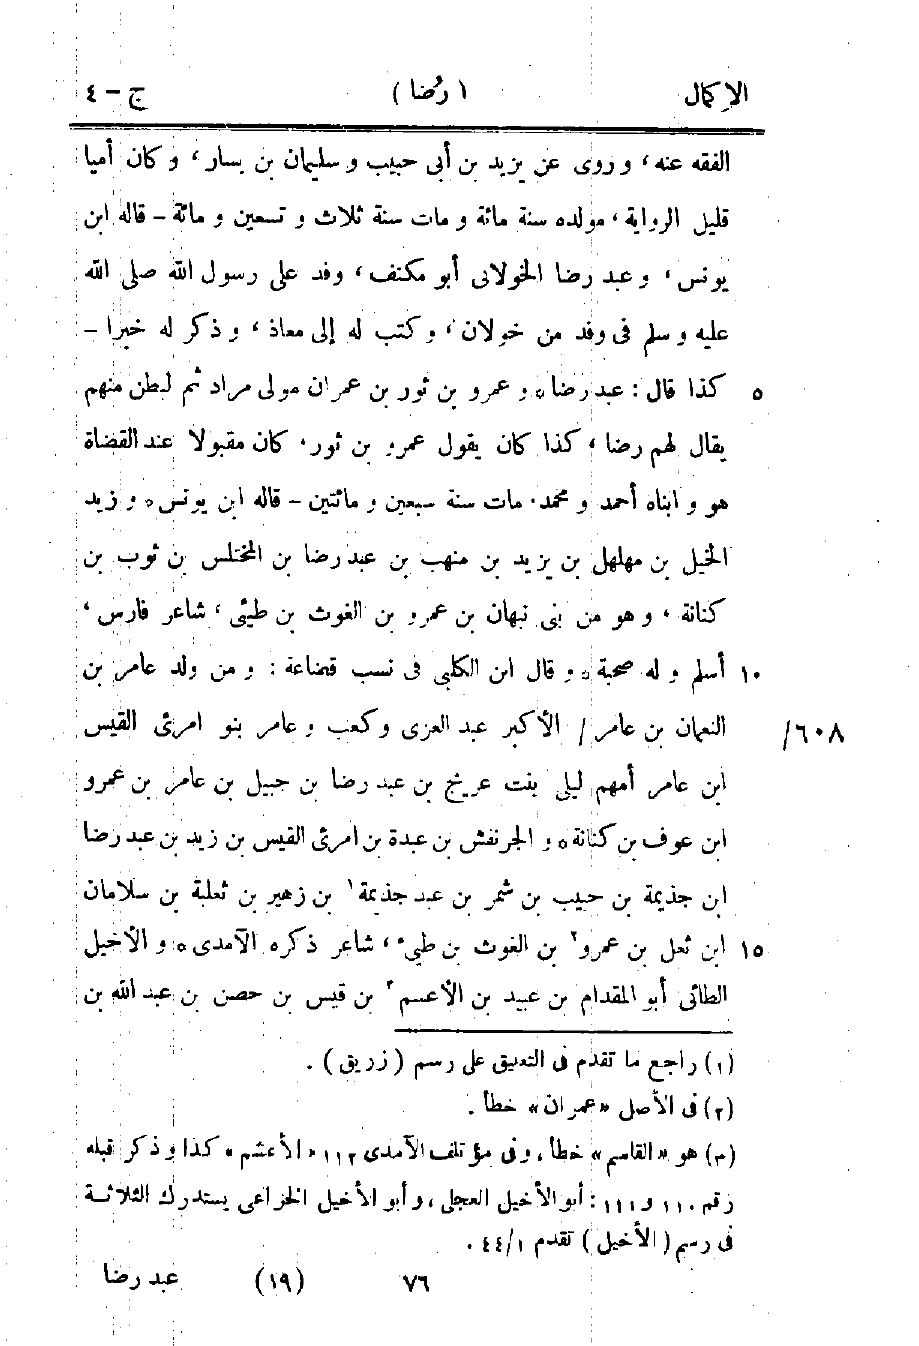 الإكمال ( رُضا ) ج - ٤
الفقه عنه، و روى عن يزيد بن أبى حبيب و سليمان بن يسار، و كان أميا
قليل الرواية، مولده سنة مائة و مات سنة ثلاث و تسعين و مائة - قاله ابن
يونس، و عبد رضا الخولانى أبو مكنف، وفد على رسول الله صلى الله
عليه و سلم فى وفد من خولان، و كتب له إلى معاذ، و ذكر له خبرا -
٥ كذا قال : عبد رضا ٥ و عمرو بن ثور بن عمران مولى مراد ثم لبطن منهم
يقال لهم رضا، كذا كان يقول عمرو بن ثور، كان مقبولا عند القضاة
هو و ابناه أحمد و محمد، مات سنة سبعين و مائتين - قاله ابن يونس ٥ و زيد
الخيل بن مهلهل بن يزيد بن منهب بن عبد رضا بن المختلس بن ثوب بن
كنانة، و هو من بنى نبهان بن عمرو بن الغوث بن طيئ، شاعر فارس،
١٠ أسلم و له صحبة ٥ و قال ابن الكلبى فى نسب قضاعة : و من ولد عامر بن
٦٠٨/ النعمان بن عامر / الأكبر عبد العزى و كعب و عامر بنو امرئ القيس
ابن عامر أمهم ليلى بنت عريج بن عبد رضا بن جبيل بن عامر بن عمرو
ابن عوف بن كنانة ٥ و الجرنفش بن عبدة بن امرئ القيس بن زيد بن عبد رضا
ابن جذيمة بن حبيب بن شمر بن عبد جذيمة١ بن زهير بن ثعلبة بن سلامان
١٥ ابن ثعل بن عمرو٢ بن الغوث بن طيء، شاعر ذكره الآمدى ٥ و الأخيل
الطائى أبو المقدام بن عبيد بن الأعسم٣ بن قيس بن حصن بن عبد الله بن
(١) راجع ما تقدم فى التعليق على رسم (زريق) .
(٢) فى الأصل «عمران» خطأ .
(٣) هو «القاسم» خطأ، وفى مؤتلف الآمدى ١١٢ «الأعشم» كذا وذكر قبله
رقم ١١٠ و ١١١ : أبو الأخيل العجلى، وأبو الأخيل الخزاعى يستدرك الثلاثة
فى رسم (الأخيل) تقدم ٤٤/١ .
٧٦ (١٩) عبد رضا